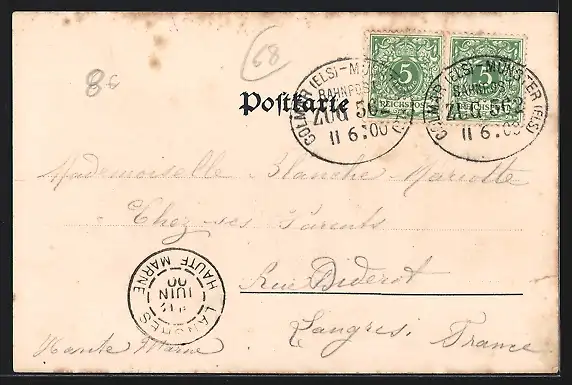 68
5
REICHSPOST
5
COLMAR (ELS)-MÜNSTER (ELS)
BAHNPOST
ZUG 562
11 6:00
COLMAR (ELS)-MÜNSTER (ELS)
BAHNPOST
ZUG 562
11 6:00
Postkarte
Mademoiselle Blanche Mariotte
Chez ses Parents
Rue Diderot
Langres. France
Haute Marne
LANGRES
HAUTE MARNE
JUIN
00